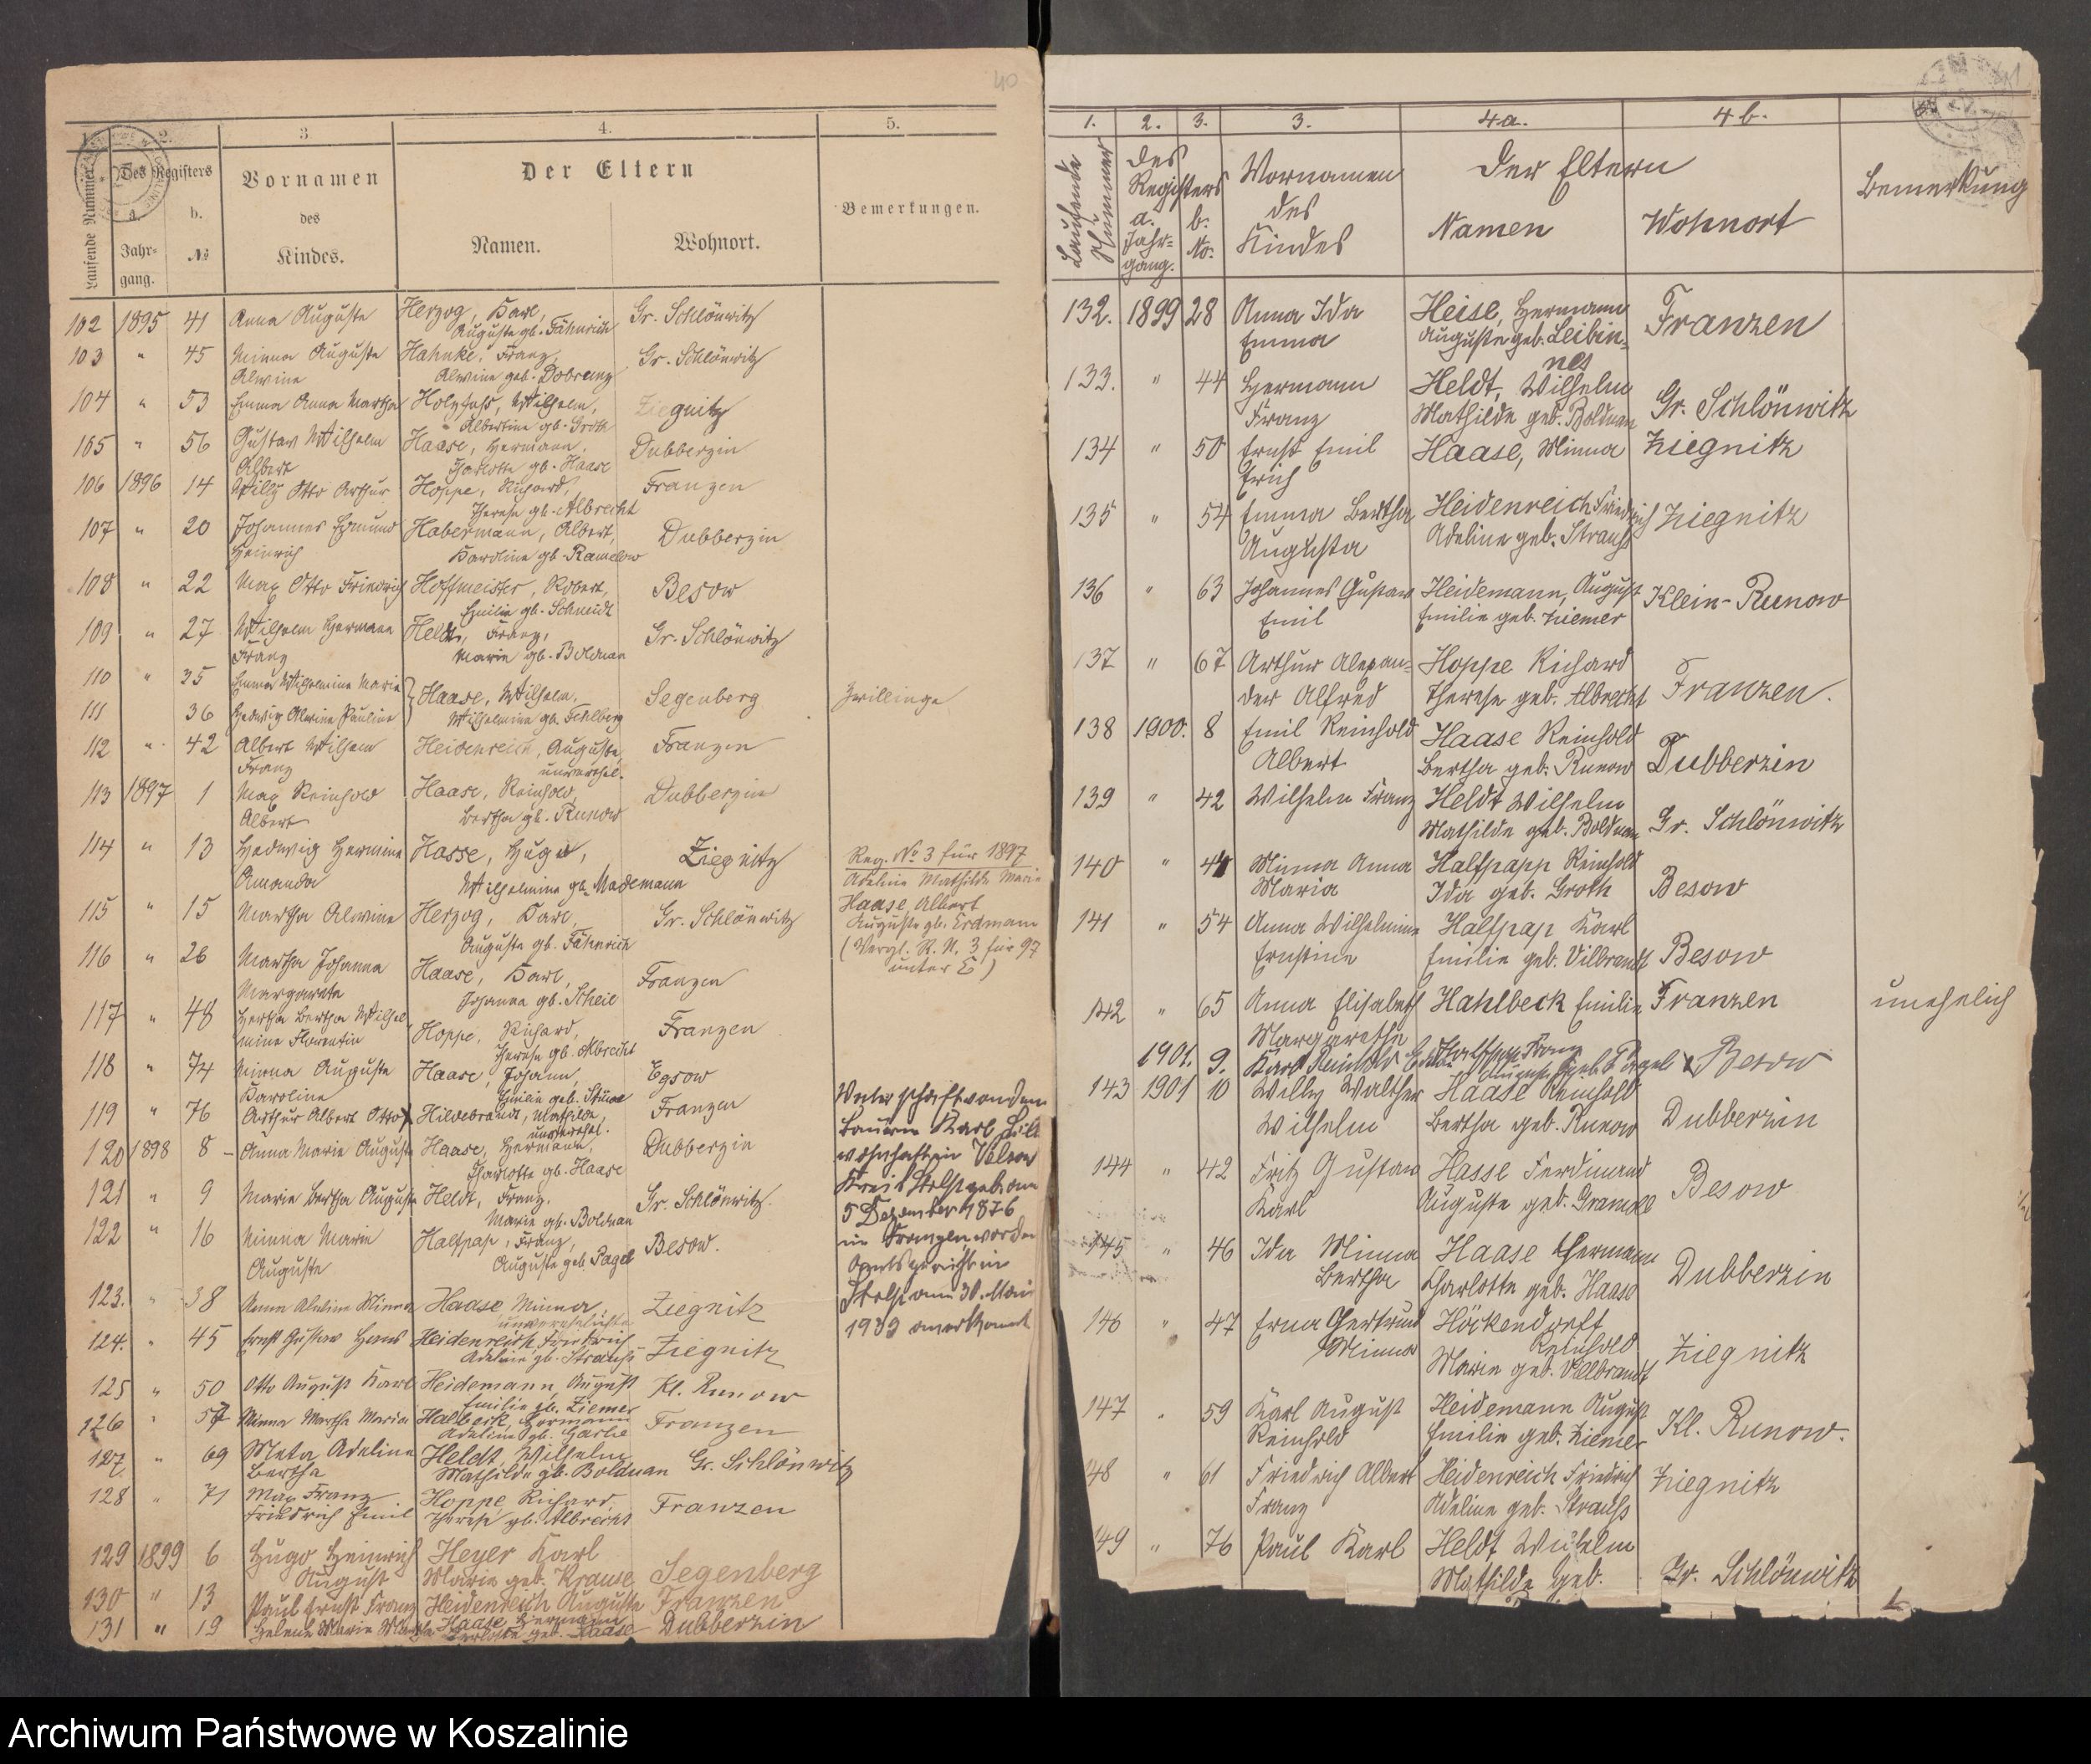 40
1. 2. 3. 4. 5.
Laufende Nummer
Des Registers
a. Jahr-
gang.
b. №
Vornamen
des
Kindes.
Der Eltern
Namen. Wohnort.
Bemerkungen.
102 1895 41 Anna Auguste Herzog, Karl, Gr. Schlönwitz
Auguste gb. Fähnrich
103 " 45 Minna Auguste Hahnke, Franz, Gr. Schlönwitz
Alwine Alwine geb.
104 " 53 Emma Anna Martha Holzfuß, Wilhelm, Ziegnitz
Albertine gb. Groth
105 " 56 Gustav Wilhelm Haase, Hermann, Dubberzin
Albert Charlotte gb. Haase
106 1896 14 Willy Otto Arthur Hoppe, Richard, Franzen
Therese gb. Albrecht
107 " 20 Johannes Edmund Habermann, Albert, Dubberzin
Heinrich Karoline gb. Ramelow
108 " 22 Max Otto Friedrich Hoffmeister, Robert, Besow
Emilie gb. Schmidt
109 " 27 Wilhelm Hermann Heldt, Franz, Gr. Schlönwitz
Franz Marie gb. Bolduan
110 " 35 Emma Wilhelmine Marie
Haase, Wilhelm, Segenberg Zwillinge
111 36 Hedwig Alwine Pauline Wilhelmine gb.
112 " 42 Albert Wilhelm Heidenreich, Auguste, Franzen
Franz unverehel.
113 1897 1 Max Reinhold Haase, Reinhold, Dubberzin
Albert Bertha gb. Runow
114 " 13 Hedwig Hermine Hasse, Hugo, Ziegnitz Reg. № 3 für 1897
Amanda Wilhelmine gb. Mademann Adeline Mathilde Marie
115 " 15 Martha Alwine Herzog, Karl, Gr. Schlönwitz Haase, Albert
Auguste gb. Fähnrich Auguste gb. Erdmann
116 " 26 Martha Johanna Haase, Karl, Franzen (Vergl. R. N. 3 für 97
Margareta Johanna gb. Scheil unter E)
117 " 48 Hertha Bertha Wilhel
mine Florentin Hoppe, Richard, Franzen
Therese gb. Albrecht
118 " 74 Minna Auguste Haase, Johann, Egsow
Karoline Emilie geb.
119 " 76 Arthur Albert Otto Hildebrandt, Mathilde, Franzen
unverehel.
120 1898 8 Anna Marie Auguste Haase, Hermann, Dubberzin
Charlotte gb. Haase
121 " 9 Marie Bertha Auguste Heldt, Franz. Gr. Schlönwitz.
Marie gb. Bolduan
122 " 16 Minna Marie Halfpap, Franz, Besow.
Auguste Auguste geb. Pagel
Vaterschaft von dem
Bauern Karl
wohnhaft in
Kreis Stolp geb. am
5 Dezember 1876
in Franzen vor dem
Amtsgericht in
Stolp am 30. Mai
1939 anerkannt
123. " 38 Anna Alwine Minna Haase Minna, Ziegnitz
unverehelichte
124. " 45 Ernst Gustav Hans Heidenreich, Friedrich Ziegnitz
Adeline gb. Strauß
125 " 50 Otto August Karl Heidemann, August Kl. Runow
Emilie gb. Ziemer
126 " 57 Minna Martha Maria Halbeck, Hermann Franzen
Adeline gb.
127 " 69 Meta Adeline Heldt, Wilhelm Gr. Schlönwitz
Bertha Mathilde gb. Bolduan
128 " 71 Max Franz Hoppe, Richard, Franzen
Friedrich Emil Therese gb. Albrecht
129 1899 6 Hugo Heinrich Heyer Karl Segenberg
August Marie geb. Krause
130 " 13 Paul Ernst Franz Heidenreich Auguste Franzen
131 " 19 Helene Marie Haase, Hermann Dubberzin
Charlotte geb. Haase
41
1. 2. 3. 3. 4a. 4b.
Laufende
Nummer
des
Registers
a. Jahr-
gang.
b. No.
Vornamen
des
Kindes
der Eltern
Namen Wohnort
Bemerkung
132. 1899 28 Anna Ida Heise, Hermann Franzen
Emma Auguste geb. Leibin-
nes
133. " 44 Hermann Heldt, Wilhelm Gr. Schlönwitz
Franz Mathilde geb. Bolduan
134 " 50 Ernst Emil Haase, Minna Ziegnitz
Erich
135 " 54 Emma Bertha Heidenreich Friedrich Ziegnitz
Augusta Adeline geb. Strauss
136 " 63 Johannes Gustav Heidemann, August Klein-Runow
Emil Emilie geb. Ziemer
137 " 67 Arthur Alexan- Hoppe Richard Franzen.
der Alfred Therese geb. Albrecht
138 1900. 8 Emil Reinhold Haase Reinhold
Albert Bertha geb. Runow Dubberzin
139 " 42 Wilhelm Franz Heldt Wilhelm Gr. Schlönwitz
Mathilde geb. Bolduan
140 " 44 Minna Anna Halfpapp Reinhold Besow
Maria Ida geb. Groth
141 " 54 Anna Wilhelmine Halfpap Karl Besow
Ernstine Emilie geb. Vilbrandt
142 " 65 Anna Elisabeth Hahlbeck Emilie Franzen unehelich
Margarethe
1901. 9. Karl Reinhold Halfpap Franz Besow
Auguste geb. Pagel
143 1901 10 Willy Walther Haase Reinhold Dubberzin
Wilhelm Bertha geb. Runow
144 " 42 Fritz Gustav Hasse Ferdinand Besow
Karl Auguste geb.
145 " 46 Ida Minna Haase Hermann Dubberzin
Bertha Charlotte geb. Haase
146 " 47 Erna Gertrud Höckendorff Ziegnitz
Minna Reinhold
Marie geb. Villbrandt
147 " 59 Karl August Heidemann August Kl. Runow.
Reinhold Emilie geb. Ziemer
148 " 61 Friedrich Albert Heidenreich Friedrich Ziegnitz
Franz Adeline geb. Strauss
149 " 76 Paul Karl Heldt Wilhelm Gr. Schlönwitz
Mathilde geb.
Archiwum Państwowe w Koszalinie